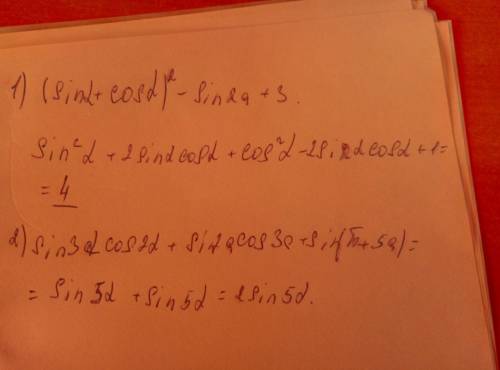 1) (sinα + cosα)² - sin2α + 3.
sin²α + 2sinαcosα + cos²α - 2sinαcosα + 1 =
= 4
2) sin3αcos2α + sin2αcos3α + sin(π + 5α) =
= sin5α + sin5α = 2sin5α.